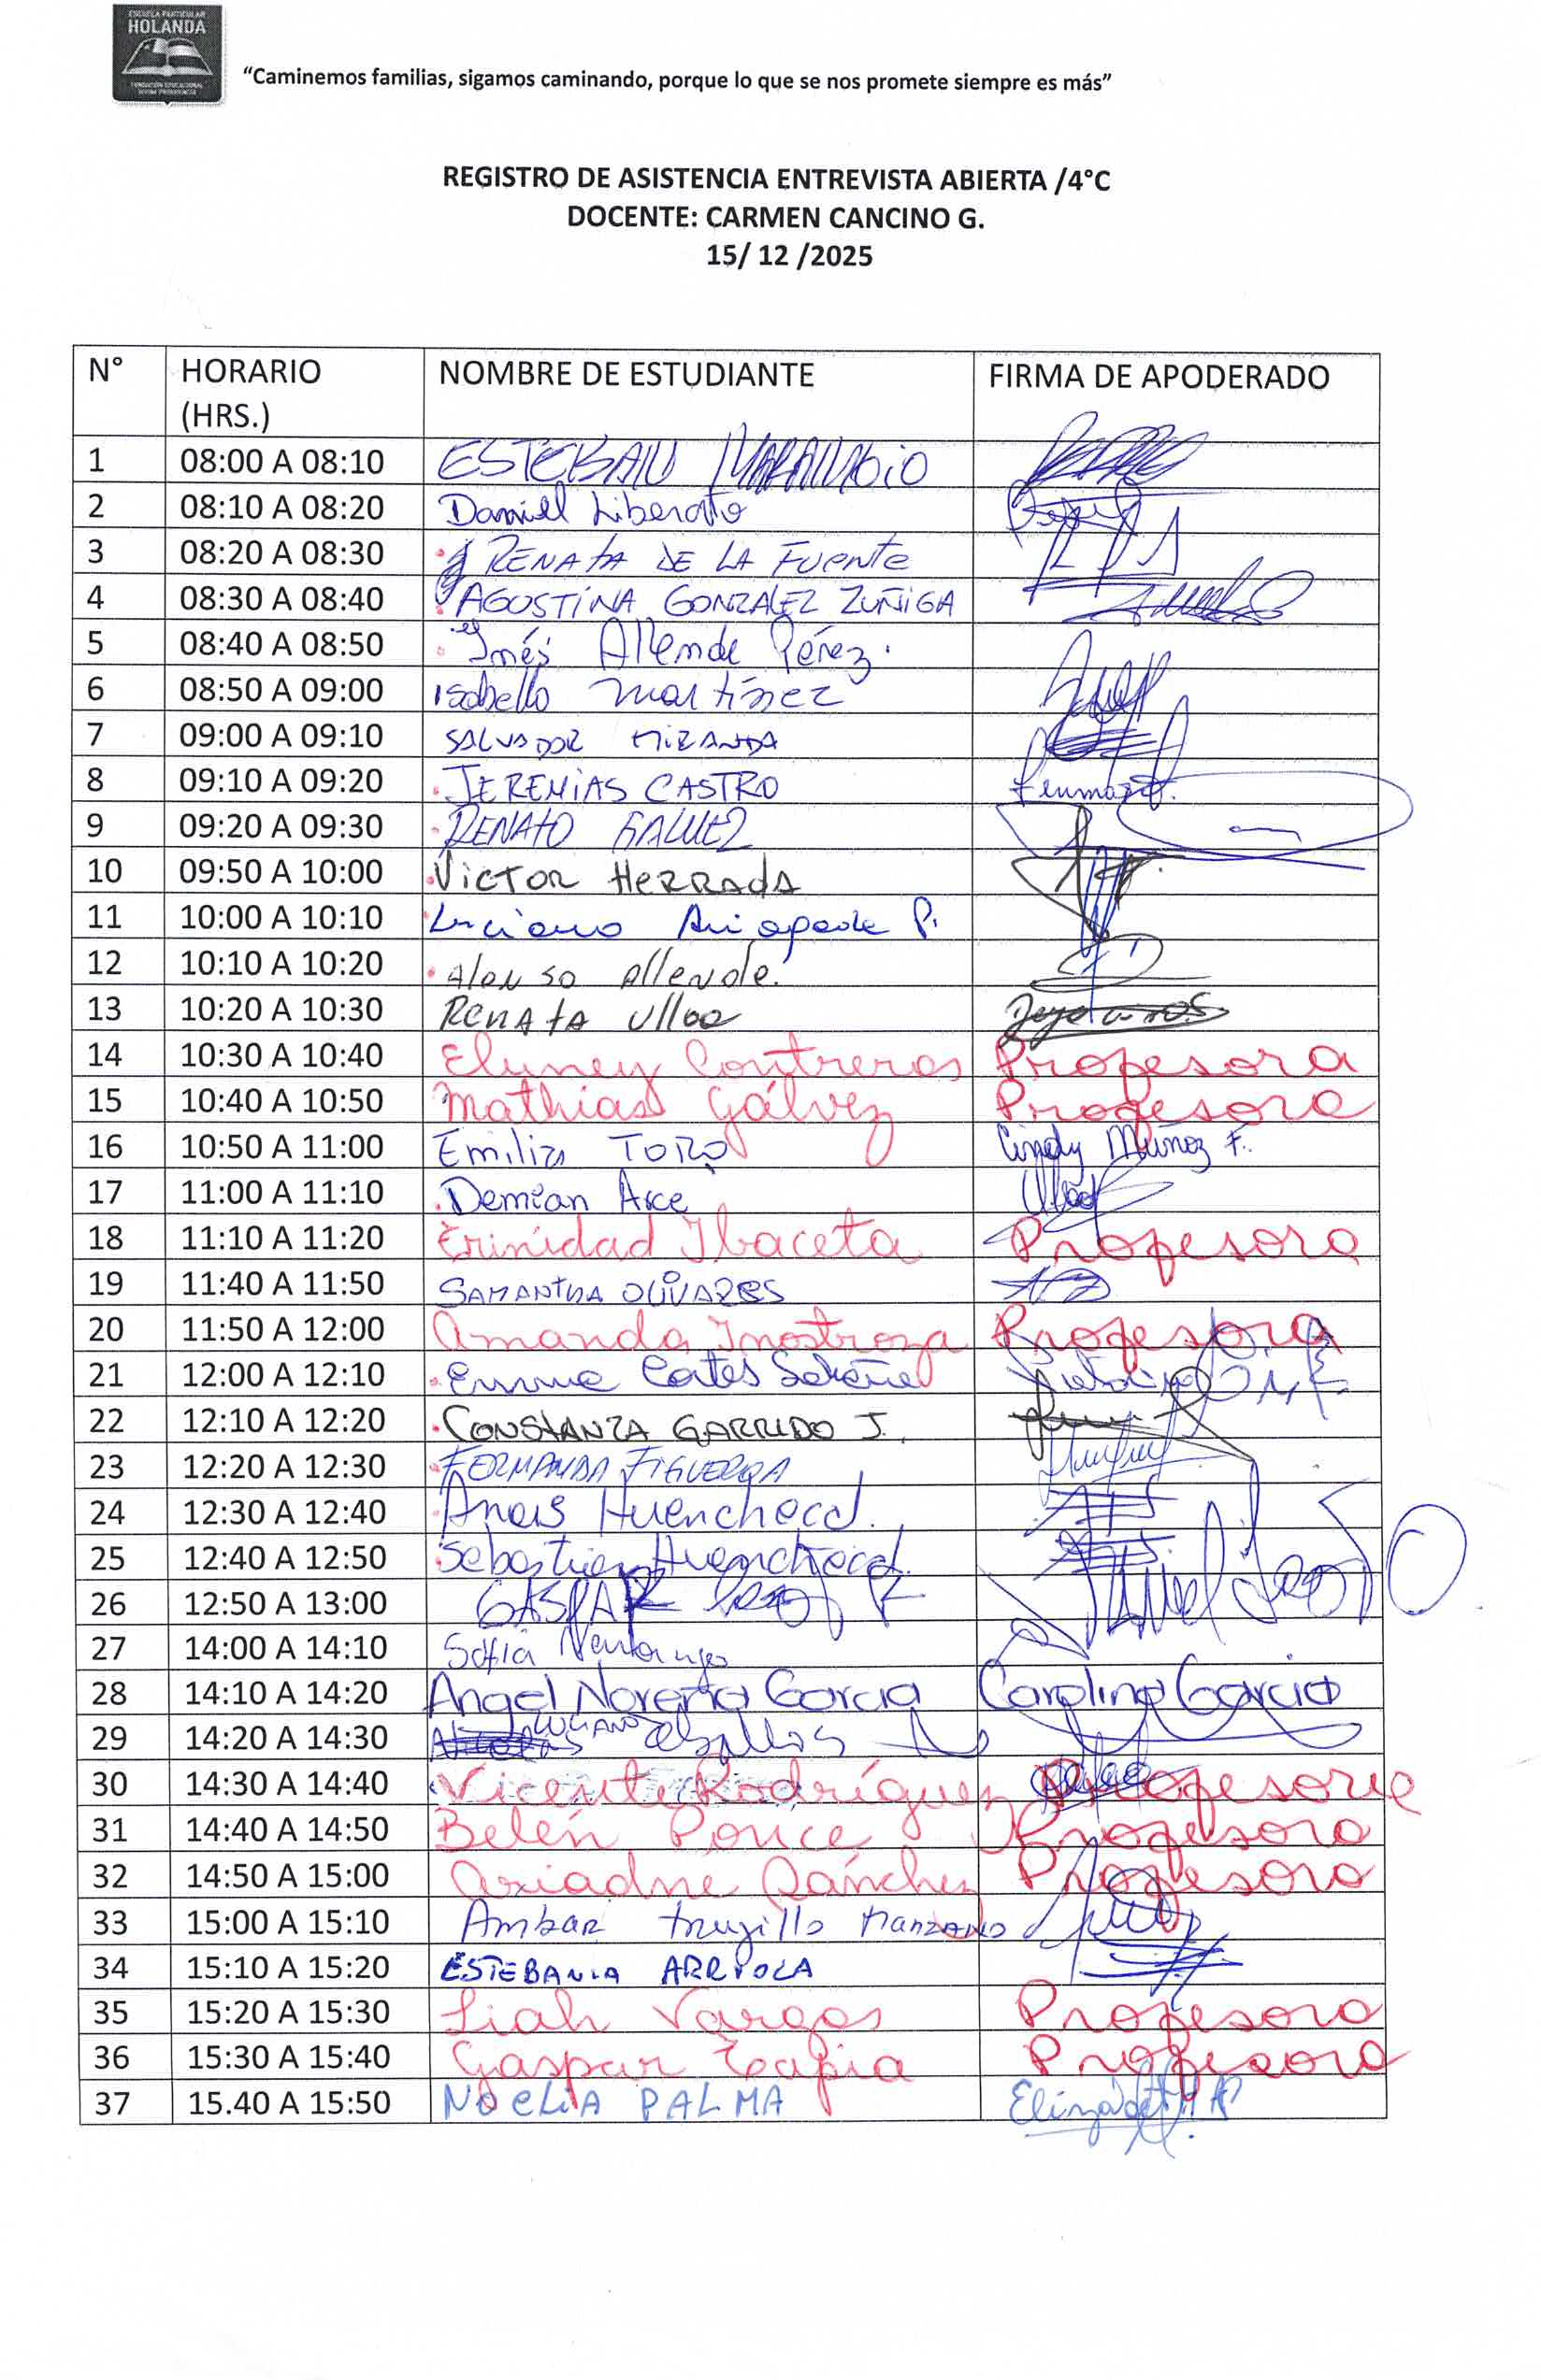 ESCUELA PARTICULAR
HOLANDA
FUNDACIÓN EDUCACIONAL
DIVINA PROVIDENCIA
“Caminemos familias, sigamos caminando, porque lo que se nos promete siempre es más”
REGISTRO DE ASISTENCIA ENTREVISTA ABIERTA /4°C
DOCENTE: CARMEN CANCINO G.
15/ 12 /2025
N° HORARIO (HRS.) NOMBRE DE ESTUDIANTE FIRMA DE APODERADO
1 08:00 A 08:10 ESTEBAN
2 08:10 A 08:20 Daniel Liberato
3 08:20 A 08:30 RENATA DE LA FUENTE
4 08:30 A 08:40 AGOSTINA GONZALEZ ZUÑIGA
5 08:40 A 08:50 Inés Allende Pérez.
6 08:50 A 09:00 Isabella Martínez
7 09:00 A 09:10 SALVADOR MIRANDA
8 09:10 A 09:20 JEREMIAS CASTRO
9 09:20 A 09:30 RENATO GALVEZ
10 09:50 A 10:00 VICTOR HERRADA
11 10:00 A 10:10 Luciano P.
12 10:10 A 10:20 Alonso Allende.
13 10:20 A 10:30 RENATA Ulloa
14 10:30 A 10:40 Eluney Contreras Profesora
15 10:40 A 10:50 Mathias Gálvez Profesora
16 10:50 A 11:00 Emilia TORO Cindy Muñoz F.
17 11:00 A 11:10 Demian Arce
18 11:10 A 11:20 Trinidad Ibaceta Profesora
19 11:40 A 11:50 SAMANTHA OLIVARES
20 11:50 A 12:00 Amanda Inostroza Profesora
21 12:00 A 12:10 Emma Cortés
22 12:10 A 12:20 CONSTANZA GARRIDO J.
23 12:20 A 12:30 FERNANDA FIGUEROA
24 12:30 A 12:40 Anais Huenchecal.
25 12:40 A 12:50 Sebastian Huenchecal.
26 12:50 A 13:00 GASPAR
27 14:00 A 14:10 Sofia
28 14:10 A 14:20 Angel Noreña Garcia Carolina Garcia
29 14:20 A 14:30 LUCIANO
30 14:30 A 14:40 Vicente Rodríguez Profesora
31 14:40 A 14:50 Belén Ponce Profesora
32 14:50 A 15:00 Ariadne Sánchez Profesora
33 15:00 A 15:10 Ambar trujillo Manzano
34 15:10 A 15:20 ESTEBANIA ARRIOLA
35 15:20 A 15:30 Liah Vargas Profesora
36 15:30 A 15:40 Gaspar Tapia Profesora
37 15.40 A 15:50 NOELIA PALMA